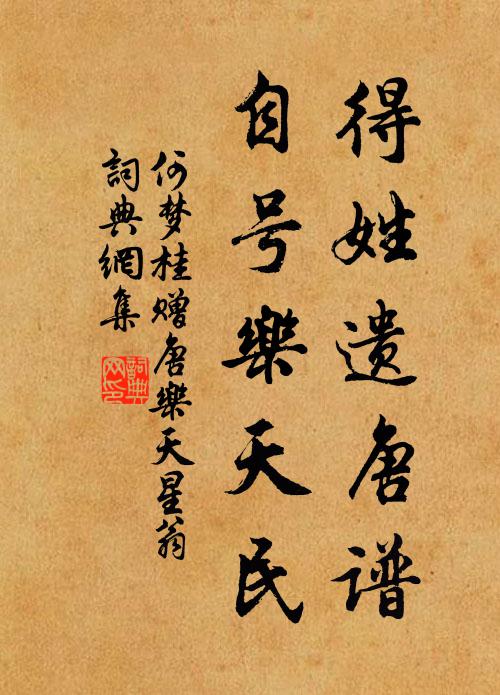 得姓遗唐谱
自号樂天民
何梦桂赠唐樂天星翁
詞典網集
詞典网印